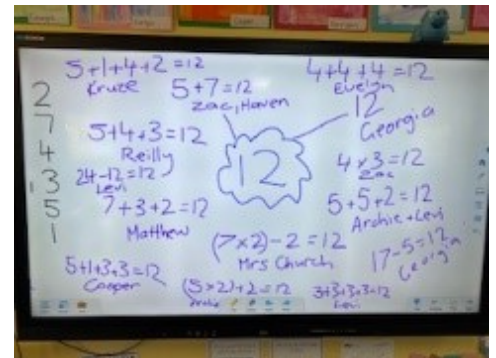 5+1+4+2=12
Kruze
5+7=12
Zac, Haven
4+4+4=12
Evelyn
12
Georgia
2
7
4
13
5
1
5+4+3=12
Reilly
24-12=12
Levi
12
4x3=12
Zac
7+3+2=12
Matthew
5+5+2=12
Archie+Levi
(7x2)-2=12
Mrs Church
17-5=12
Georgia
5+1+3+3=12
Cooper
(5x2)+2=12
Archie
3+3+3+3=12
Levi